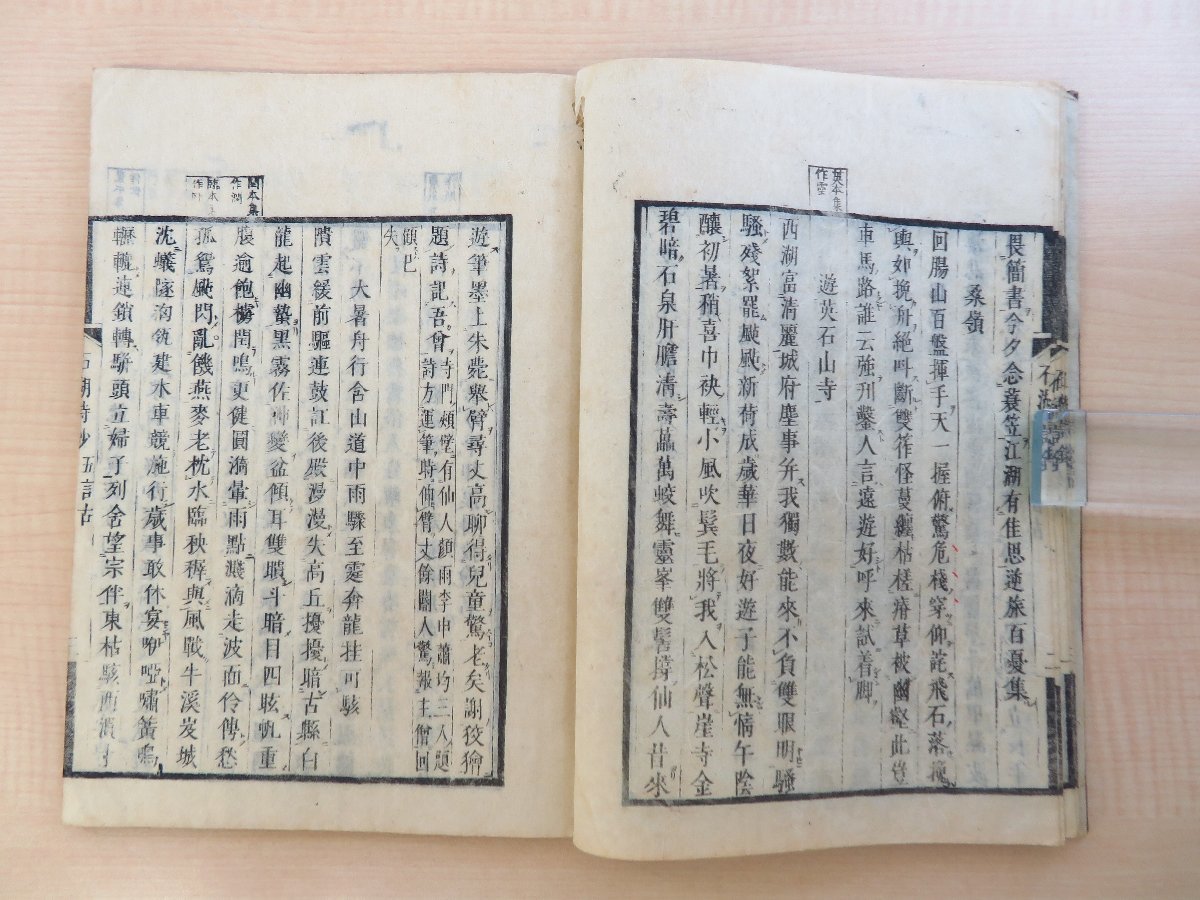 畏簡書今夕念蓑笠江湖有佳思逆旅百憂集
桑嶺
回腸山百盤揮手天一握俯驚危棧穿仰詫飛石落
輿如挽舟絕叫斷雙筰怪蔓纏枯槎瘠草被幽壑此豈
車馬路誰云強刋鑿人言遠遊好呼來試著脚
遊英石山寺
西湖富清麗城府塵事并我獨數能來不負雙眼明騷
騷殘絮罷颭颭新荷成歲華日夜好遊子能無情午陰
釀初暑稍喜巾袂輕小風吹鬂毛將我入松聲崖寺金
碧暗石泉肝膽清壽藟萬蛟舞靈峯雙髻撐仙人昔來
黃本集
作雲
遊筆墨上朱甍舉臂尋丈高聊得兒童驚老矣謝狡獪
題詩記吾曾 詩寺門頰壁有仙人顏雨李中蕭均三人題
詩方運筆時伸臂丈餘闞人驚報主僧回
顧已
失
大暑舟行含山道中雨驟至霆奔龍挂可駭
隤雲緩前驅連鼓訌後嚴漫漫失高丘擾擾暗古縣白
龍起幽蟄黑霧佐神變盆傾耳雙聵斗暗目四眩帆重
腹逾飽櫓閏鳴更健圓漪暈雨點濺滴走波面伶俜愁
孤鴛颭閃亂饑燕麥老枕水臨秧穉與風戰牛溪岌城
沈蟻隧洶瓴建水車競施行歲事敢休宴咿啞嘯簧鳴
轣轆連鎖轉駢頭立婦子列舍望宗伴東枯駭西潰寸
石湖詩鈔 五言古